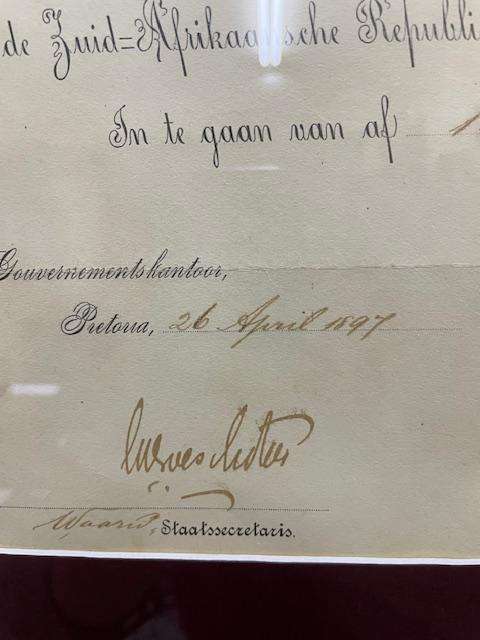 de Zuid=Afrikaansche Republi
In te gaan van af 1
Gouvernementskantoor,
Pretoria, 26 April 1897
Waarnd. Staatssecretaris.